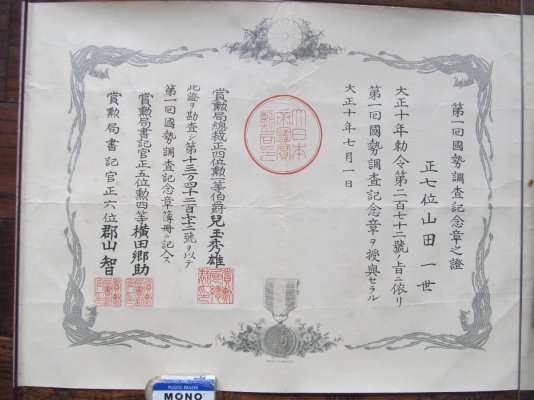 第一回國勢調査記念章之證
正七位山田一世
大正十年勅令第二百七十二號ノ旨ニ依リ
第一回國勢調査記念章ヲ授與セラル
大正十年七月一日
大日本
帝國賞
勲局印
賞勲局總裁正四位勲一等伯爵兒玉秀雄
此證ヲ勘査シ第十三万四千二百七十二號ヲ以テ
第一回國勢調査記念章簿冊ニ記入ス
賞勲局書記官正五位勲四等横田郷助
賞勲局書記官正六位郡山智
PLASTIC ERASER
MONO